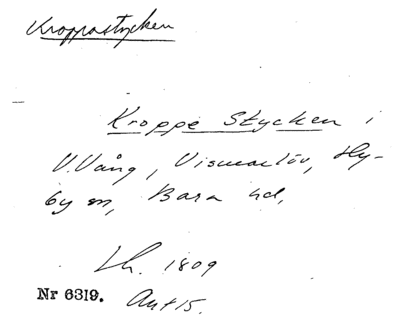 Kroppastycken
Kroppe Stycken i
V. Vång, Vismarlöv, Hy-
by sn, Bara hd,
Lh. 1809
Nr 6319. Akt 15.